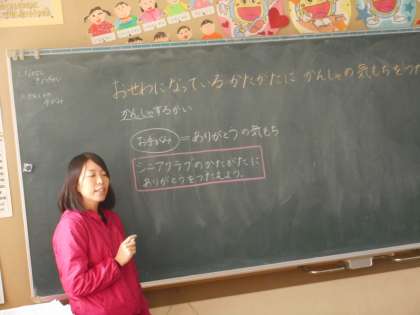 おせわになっているかたがたに かんしゃの気もちをつ
かんしゃするかい
お手がみ = ありがとうの気もち
シニアクラブのかたがたに
ありがとうをつたえよう。